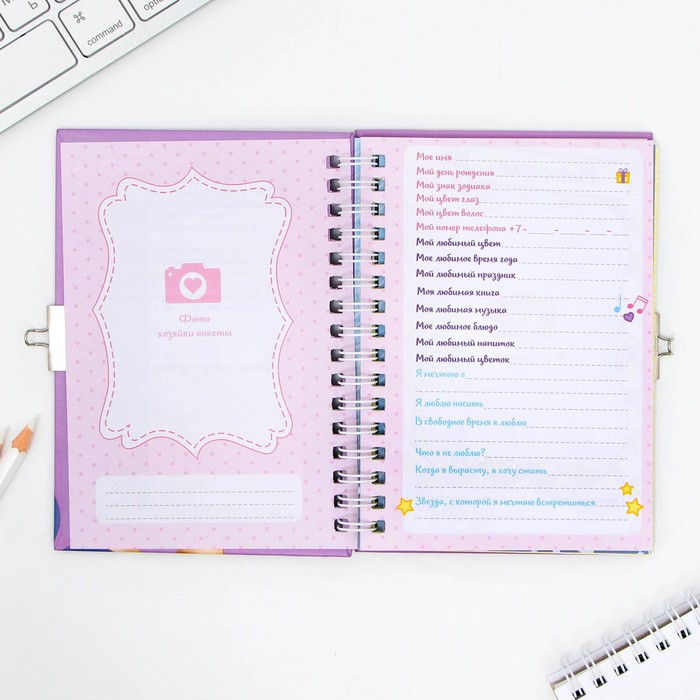 Ь
⌘
command
option
Фото
хозяйки анкеты
Мое имя
Мой день рождения
Мой знак зодиака
Мой цвет глаз
Мой цвет волос
Мой номер телефона +7-
Мой любимый цвет
Мое любимое время года
Мой любимый праздник
Моя любимая книга
Моя любимая музыка
Мое любимое блюдо
Мой любимый напиток
Мой любимый цветок
Я мечтаю о
Я люблю носить
В свободное время я люблю
Что я не люблю?
Когда я вырасту, я хочу стать
Звезда, с которой я мечтаю встретиться